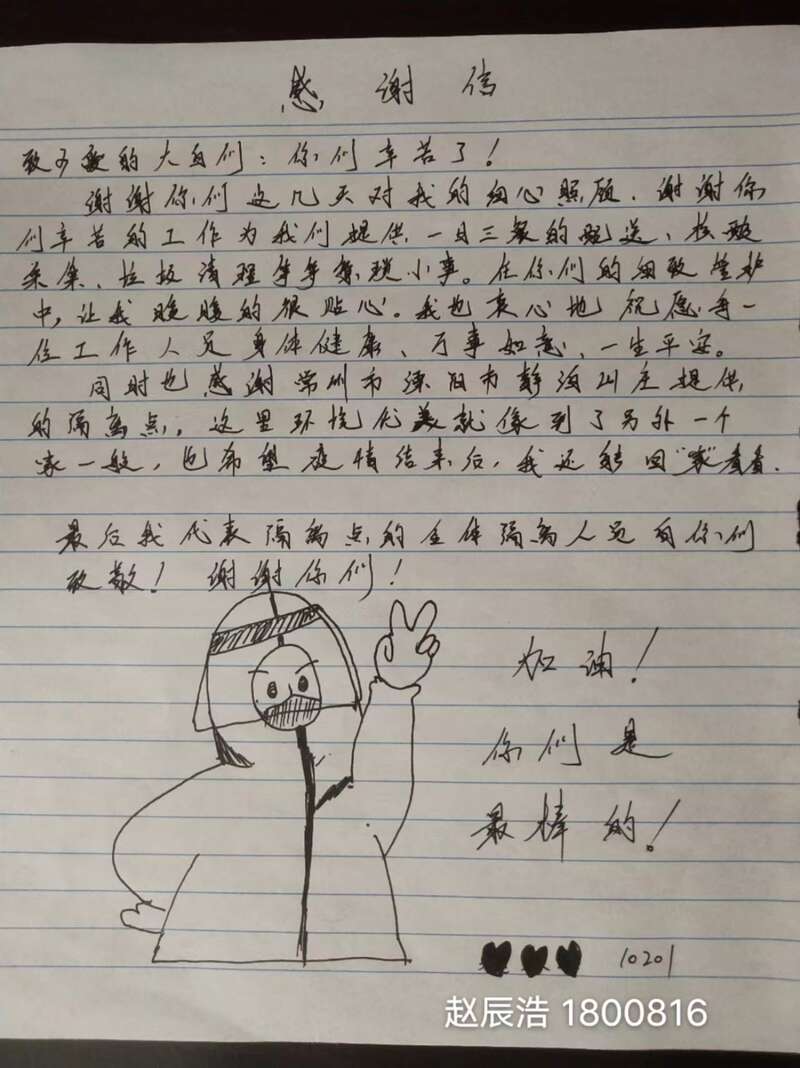 感谢信
致可爱的大白们:你们辛苦了!
谢谢你们这几天对我的细心照顾.谢谢你
们辛苦的工作为我们提供.一日三餐的配送、核酸
采集、垃圾清理等等繁琐小事。在你们的细致管护
中,让我暖暖的很贴心。我也衷心地祝愿每一
位工作人员身体健康、万事如意、一生平安。
同时也感谢常州市溧阳市静泊山庄提供
的隔离点,这里环境优美就像到了另外一个
家一般,也希望疫情结束后,我还能回"家"看看.
最后我代表隔离点的全体隔离人员向你们
致敬!谢谢你们!
加油!
你们是
最棒的!
10201
赵辰浩 1800816